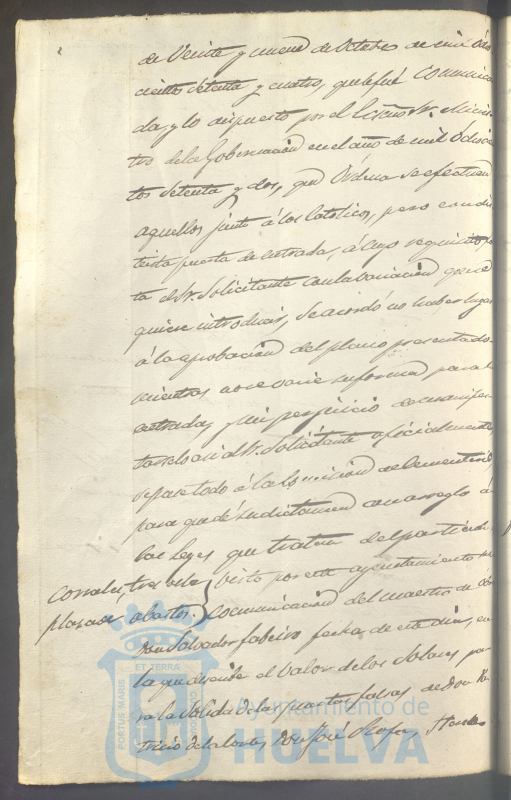 de Veinte y nueve de Octubre de mil Ocho
cientos setenta y cuatro, que le fué Comunica
da, y lo dispuesto por el Escmo Sr. Minis
tro de la Gobernacion en el año de mil Ochocien
tos setenta y dos, que Ordena se efectuen
aquellos junto á los Catolicos, pero con dis
tinta puerta de entrada, á cuyo requisito
ta el Sr. Solicitante con la variacion que se
quiere introducir, se acordó no haber lugar
á la aprobacion del plano presentado
mientras no se varie su forma para la
entrada, y sin perjuicio de manifes
tarselo asi al Sr. Solicitante oficialmente,
y pase todo á la Comision de Cementerio
para que dé su dictamen con arreglo á
las leyes que tratan del particular.
Corrales, tras de la
plaza de abastos.
Visto por este Ayuntamiento la
comunicacion del maestro de obras
Don Salvador fabeiro fecha de este dia, en
la que describe el Valor de los Solares pa
ra la Salida de las puertas falsas de Don Pa
tricio de la Corte, Don José Rofa,
PORTUS MARIS
ET TERRÆ
Ayuntamiento de
HUELVA